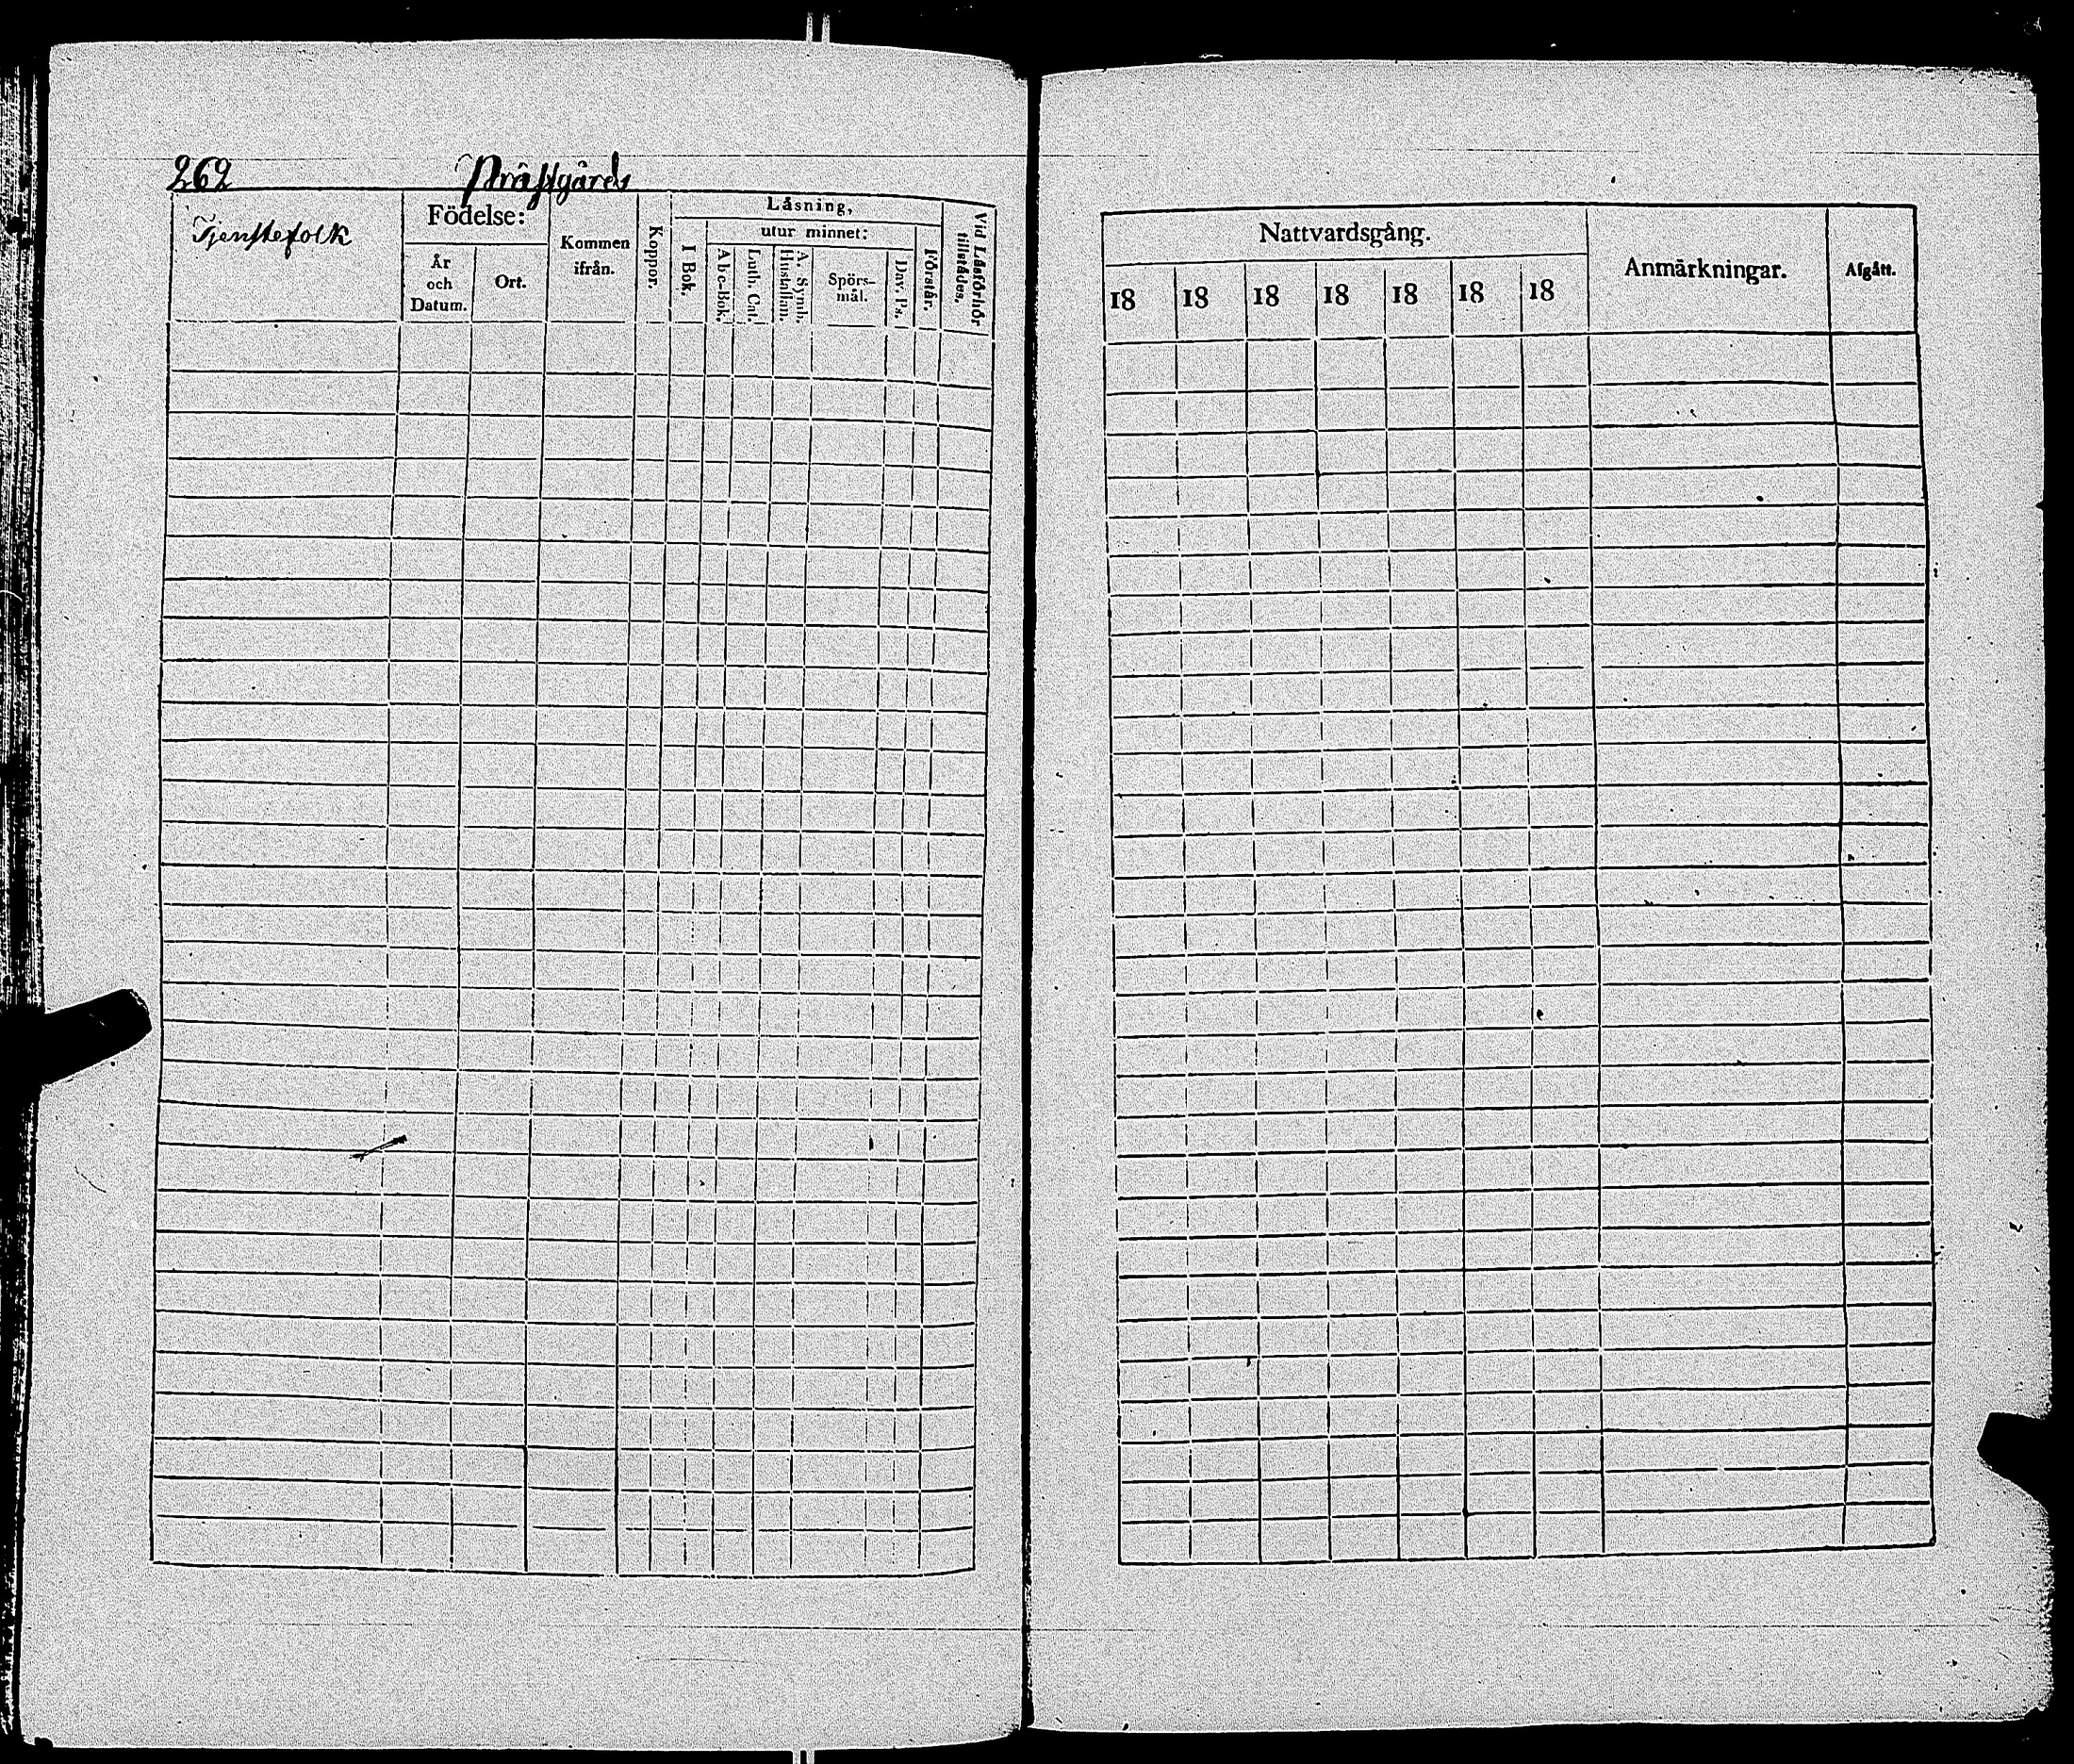 262 Prästgårds
Tjenstefolk
Födelse:
År
och
Datum.
Ort.
Kommen
ifrån.
Koppor.
Läsning,
I Bok.
utur minnet:
Abc-Bok.
Luth. Cat.
A. Symb.
Hustaflan.
Spörs-
mål.
Dav. Ps.
Förstår.
Vid Läsförhör
tillstädes.
Nattvardsgång.
18 18 18 18 18 18 18
Anmärkningar.
Afgått.